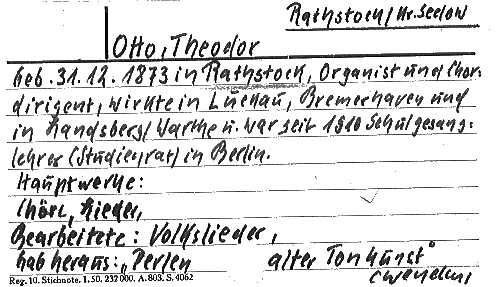 Rathstock/Kr. Seelow
Otto, Theodor
Geb. 31.12.1873 in Rathstock, Organist und Chor-
dirigent, wirkte in Luckau, Bremerhaven und
in Landsberg/Warthe u. war seit 1910 Schulgesang-
lehrer (Studienrat) in Berlin.
Hauptwerke:
Chöre, Lieder,
Bearbeitete: Volkslieder,
hab heraus: „Perlen alter Tonkunst"
Reg. 10. Stichnote. 1. 50. 232000. A. 803. S. 4062